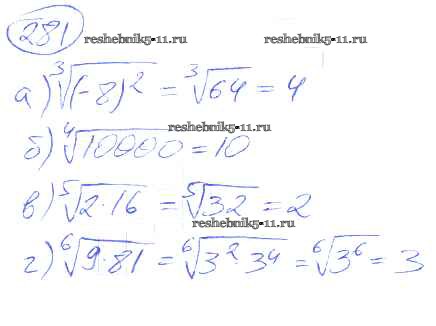 281
reshebnik5-11.ru reshebnik5-11.ru
а) ∛(-8)² = ∛64 = 4
reshebnik5-11.ru
б) ∜10000 = 10
в) ⁵√2·16 = ⁵√32 = 2
reshebnik5-11.ru
г) ⁶√9·81 = ⁶√3²·3⁴ = ⁶√3⁶ = 3